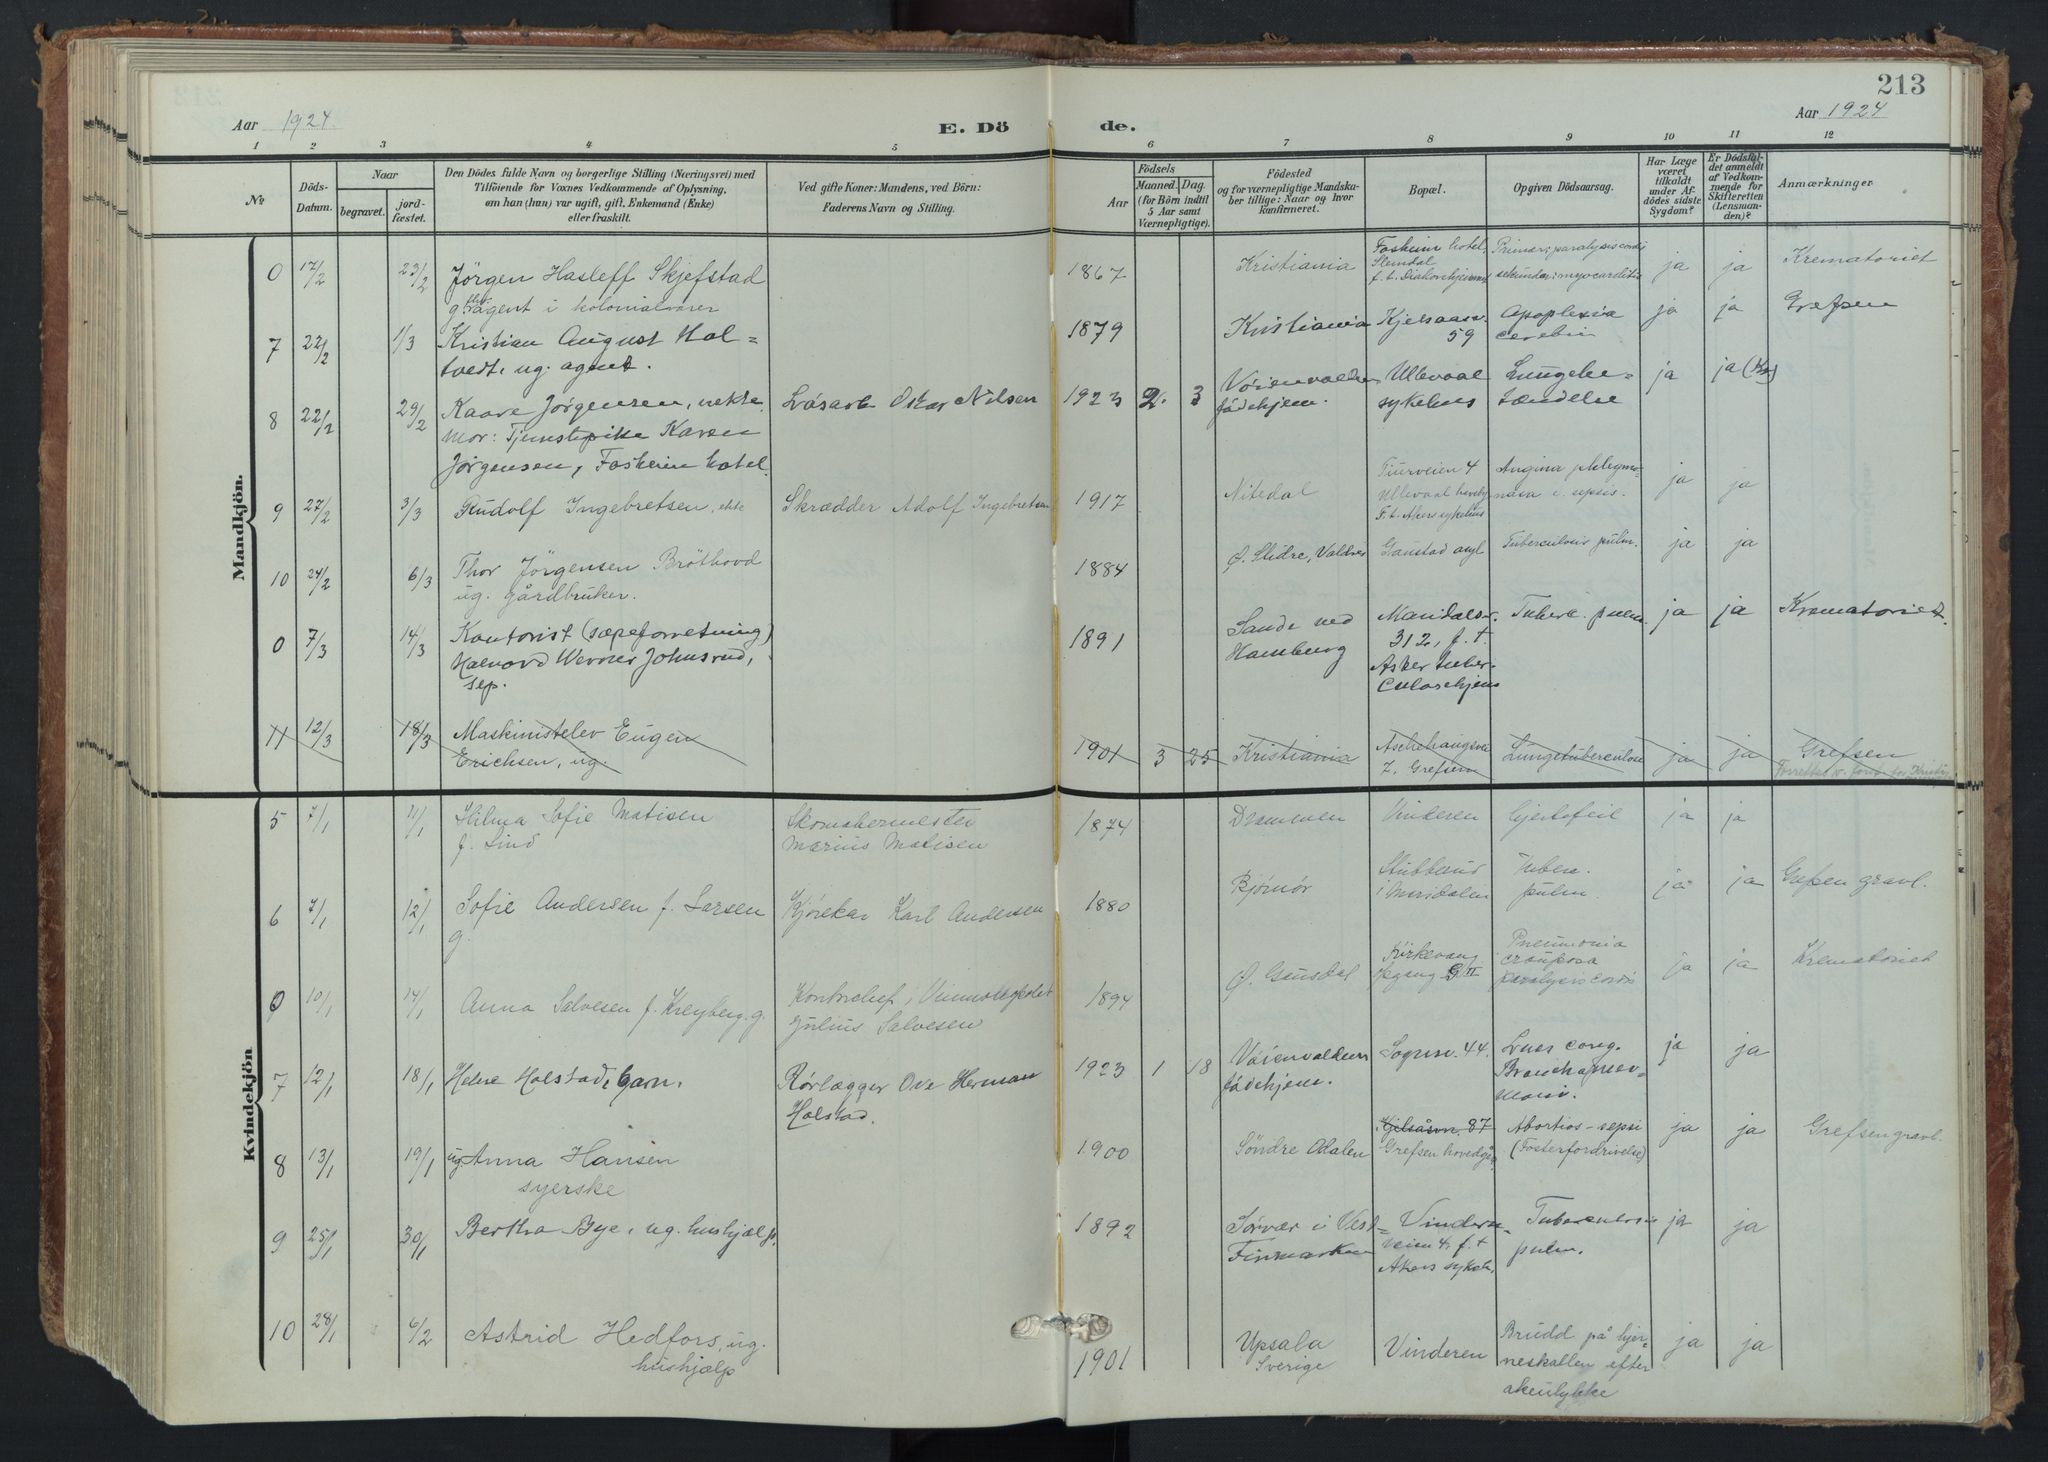 213
Aar 1924.
E. Dö
de.
Aar 1924
1 2 3 4 5 6 7 8 9 10 11 12
No
Döds-
Datum.
Naar
begravet.
jord-
fæstet.
Den Dödes fulde Navn og borgerlige Stilling (Næringsvei) med
Tilföiende for Voxnes Vedkommende af Oplysning,
om han (hun) var ugift, gift, Enkemand (Enke)
eller fraskilt.
Ved gifte Koner: Mandens, ved Börn:
Faderens Navn og Stilling.
Födsels
Aar
Maaned. Dag.
(for Börn indtil
5 Aar samt
Værnepligtige).
Födested
og for værnepligtige Mandska-
ber tillige: Naar og hvor
konfirmeret.
Bopæl.
Opgiven Dödsaarsag.
Har Læge
været
tilkaldt
under Af-
dödes sidste
Sygdom?
Er Dödsful-
det anmeldt
af Vedkom-
mende for
Skifteretten
(Lensman-
den)?
Anmærkninger
Mandkjön.
0 17/2 23/2 Jörgen Hasleff Skjefstad
g. agent i kolonialvarer
1867 Kristiania
Foskeim hotel,
Slemdal
f. t. Diakonhjemmet
Primær: paralysis cordis
sekundær: myocarditis
ja ja Krematoriet
7 22/2 1/3 Kristian August Hol-
tvedt, ug. agent.
1879 Kristiania
Kjelsaasv.
59
Apoplexia
cerebri
ja ja Grefsen
8 22/2 29/2 Kaare Jörgensen, uekte.
Mor: Tjenestepike Karen
Jörgensen, Foskeim hotel.
Lösarb. Oskar Nilsen
1923 2. 3
Vöienvolden
födehjem.
Ullevaal
sykehus
Lungebe-
tændelse
ja ja (Kr.)
9 27/2 3/3 Rudolf Ingebretsen, ekte
Skrædder Adolf Ingebretsen
1917 Nitedal
Tiurveien 4
Ullevaal haveby
F. t. Akers sykehus
Angina phlegmo-
nøsa c. sepsis.
ja ja
10 24/2 6/3 Thor Jörgensen Bröthovd
ug. gårdbruker.
1884 Ø. Slidre, Valdres
Gaustad asyl
Tuberculosis pulm.
ja ja
0 7/3 14/3 Kontorist (sæpeforretning)
Halvord Werner Johnsrud,
sep.
1891
Sande ved
Hamburg
Mandalsv.
312, f. t.
Asker tuber-
culosehjem
Tuberc. pulm.
ja ja Krematoriet.
11 12/3 18/3 Maskinistelev Eugen
Erichsen, ug.
1901 3 25 Kristiania
Aschehaugsvei
7. Grefsen
Lungetuberculose
ja ja Grefsen
Kvindekjön
5 7/1 11/1 Hilma Sofie Matisen
f. Lind
Skomakermester
Marius Matisen
1874 Drammen Vinderen Hjertefeil ja ja
6 7/1 12/1 Sofie Andersen f. Larsen
g.
Kjörekar Karl Andersen
1880 Bjömör
Stubberud
i Maridalen
Tuberc.
pulm.
ja ja Grefsen gravl.
0 10/1 14/1 Anna Salvesen f. Kreyberg. g.
Kontorchef i Vinmonopolet
Julius Salvesen
1894 Ø. Gausdal
Kirkevang
opgang G II
Pneumonia
crouposa
paralysis cordis
ja ja Krematoriet
7 12/1 18/1 Helne Holstad, barn.
Rörlægger Ove Herman
Holstad.
1923 1 18
Vöienvolden
födehjem.
Sognsv. 44.
Lues cong.
Bronchopneu-
moni.
ja ja
8 13/1 19/1 ug. Anna Hansen
syerske
1900 Söndre Odalen
Kjelsåsvn. 87
Grefsen hovedgård
Abortios-sepsi
(Fosterfordrivelse)
ja ja Grefsen gravl.
9 25/1 30/1 Bertha Bye, ug. hushjælp.
1892
Sörvær i Vest-
Finmarken
Vinderen-
veien 4. f. t.
Akers sykeh.
Tuberculosis
pulm.
ja ja
10 28/1 6/2 Astrid Hedfors, ug.
hushjælp
1901
Upsala
Sverige
Vinderen
Brudd på hjer-
neskallen efter
akeulykke
ja ja